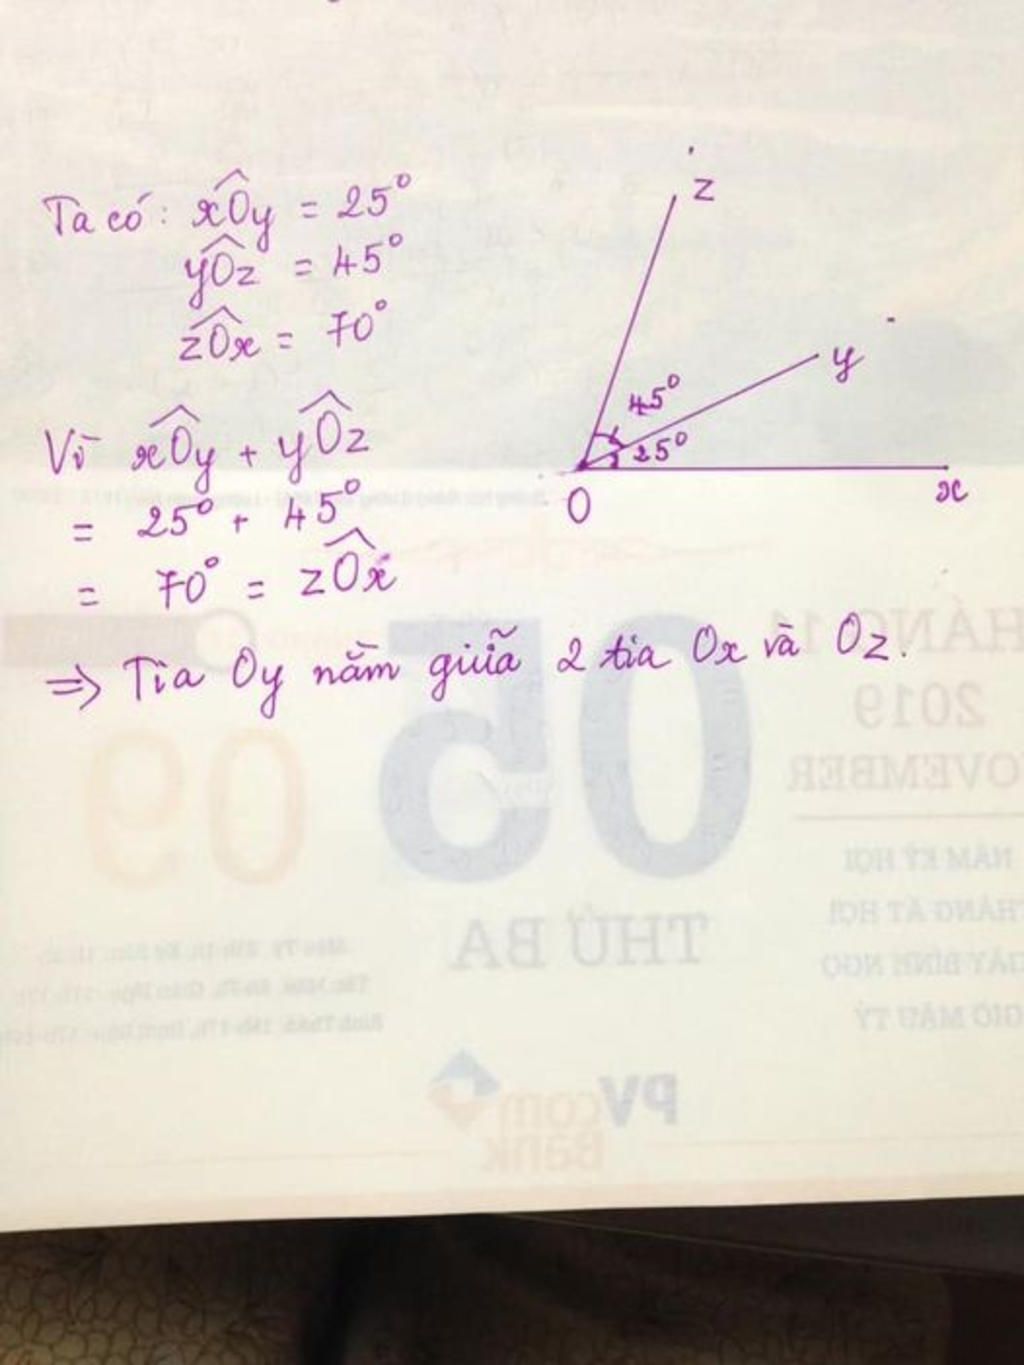 Ta có: xOy = 25°
yOz = 45°
zOx = 70°
Vì xOy + yOz
= 25° + 45°
= 70° = zOx
=> Tia Oy nằm giữa 2 tia Ox và Oz.
z
y
45°
25°
O
x
THÁNG 11
2019
NOVEMBER
05
09
NĂM KỶ HỢI
THÁNG ẤT HỢI
NGÀY BÍNH NGỌ
GIỜ MẬU TÝ
THỨ BA
PVcom
Bank